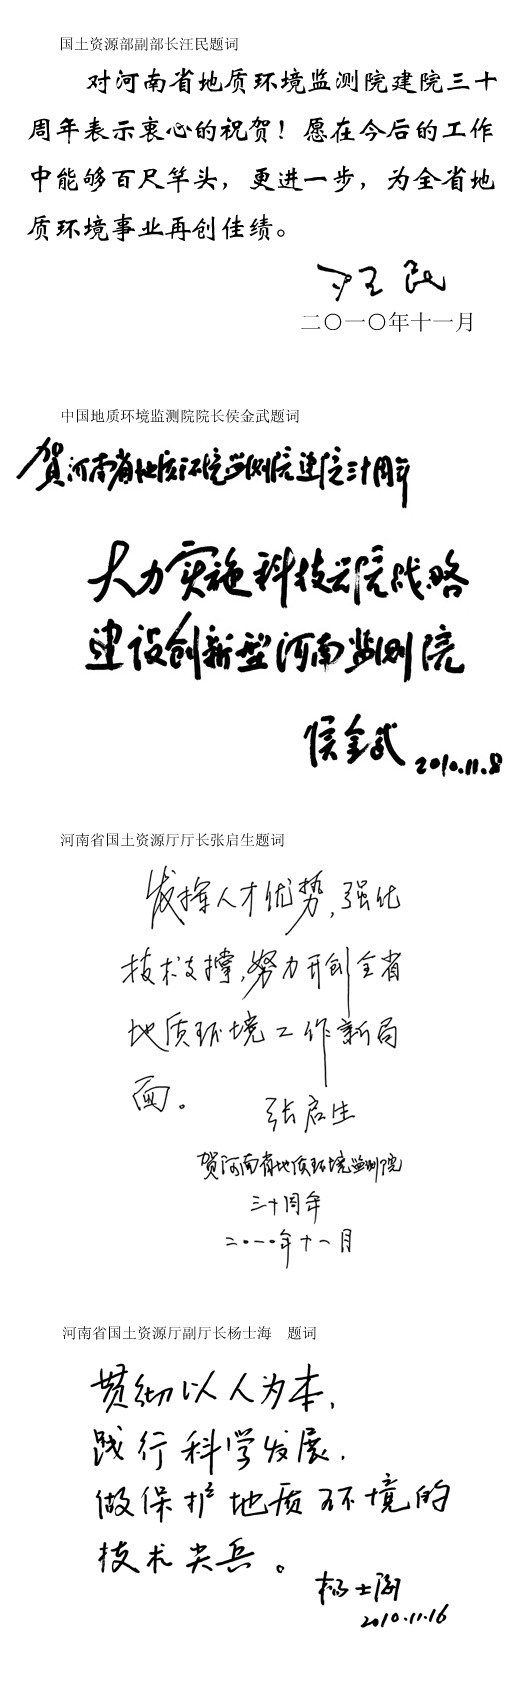 国土资源部副部长汪民题词
对河南省地质环境监测院建院三十
周年表示衷心的祝贺！愿在今后的工作
中能够百尺竿头，更进一步，为全省地
质环境事业再创佳绩。
汪民
二〇一〇年十一月
中国地质环境监测院院长侯金武题词
贺河南省地质环境监测院建院三十周年
大力实施科技兴院战略
建设创新型河南监测院
侯金武 2010.11.8
河南省国土资源厅厅长张启生题词
发挥人才优势，强化
技术支撑，努力开创全省
地质环境工作新局
面。
张启生
贺河南省地质环境监测院
三十周年
二〇一〇年十一月
河南省国土资源厅副厅长杨士海 题词
贯彻以人为本，
践行科学发展，
做保护地质环境的
技术尖兵。
杨士海
2010.11.16